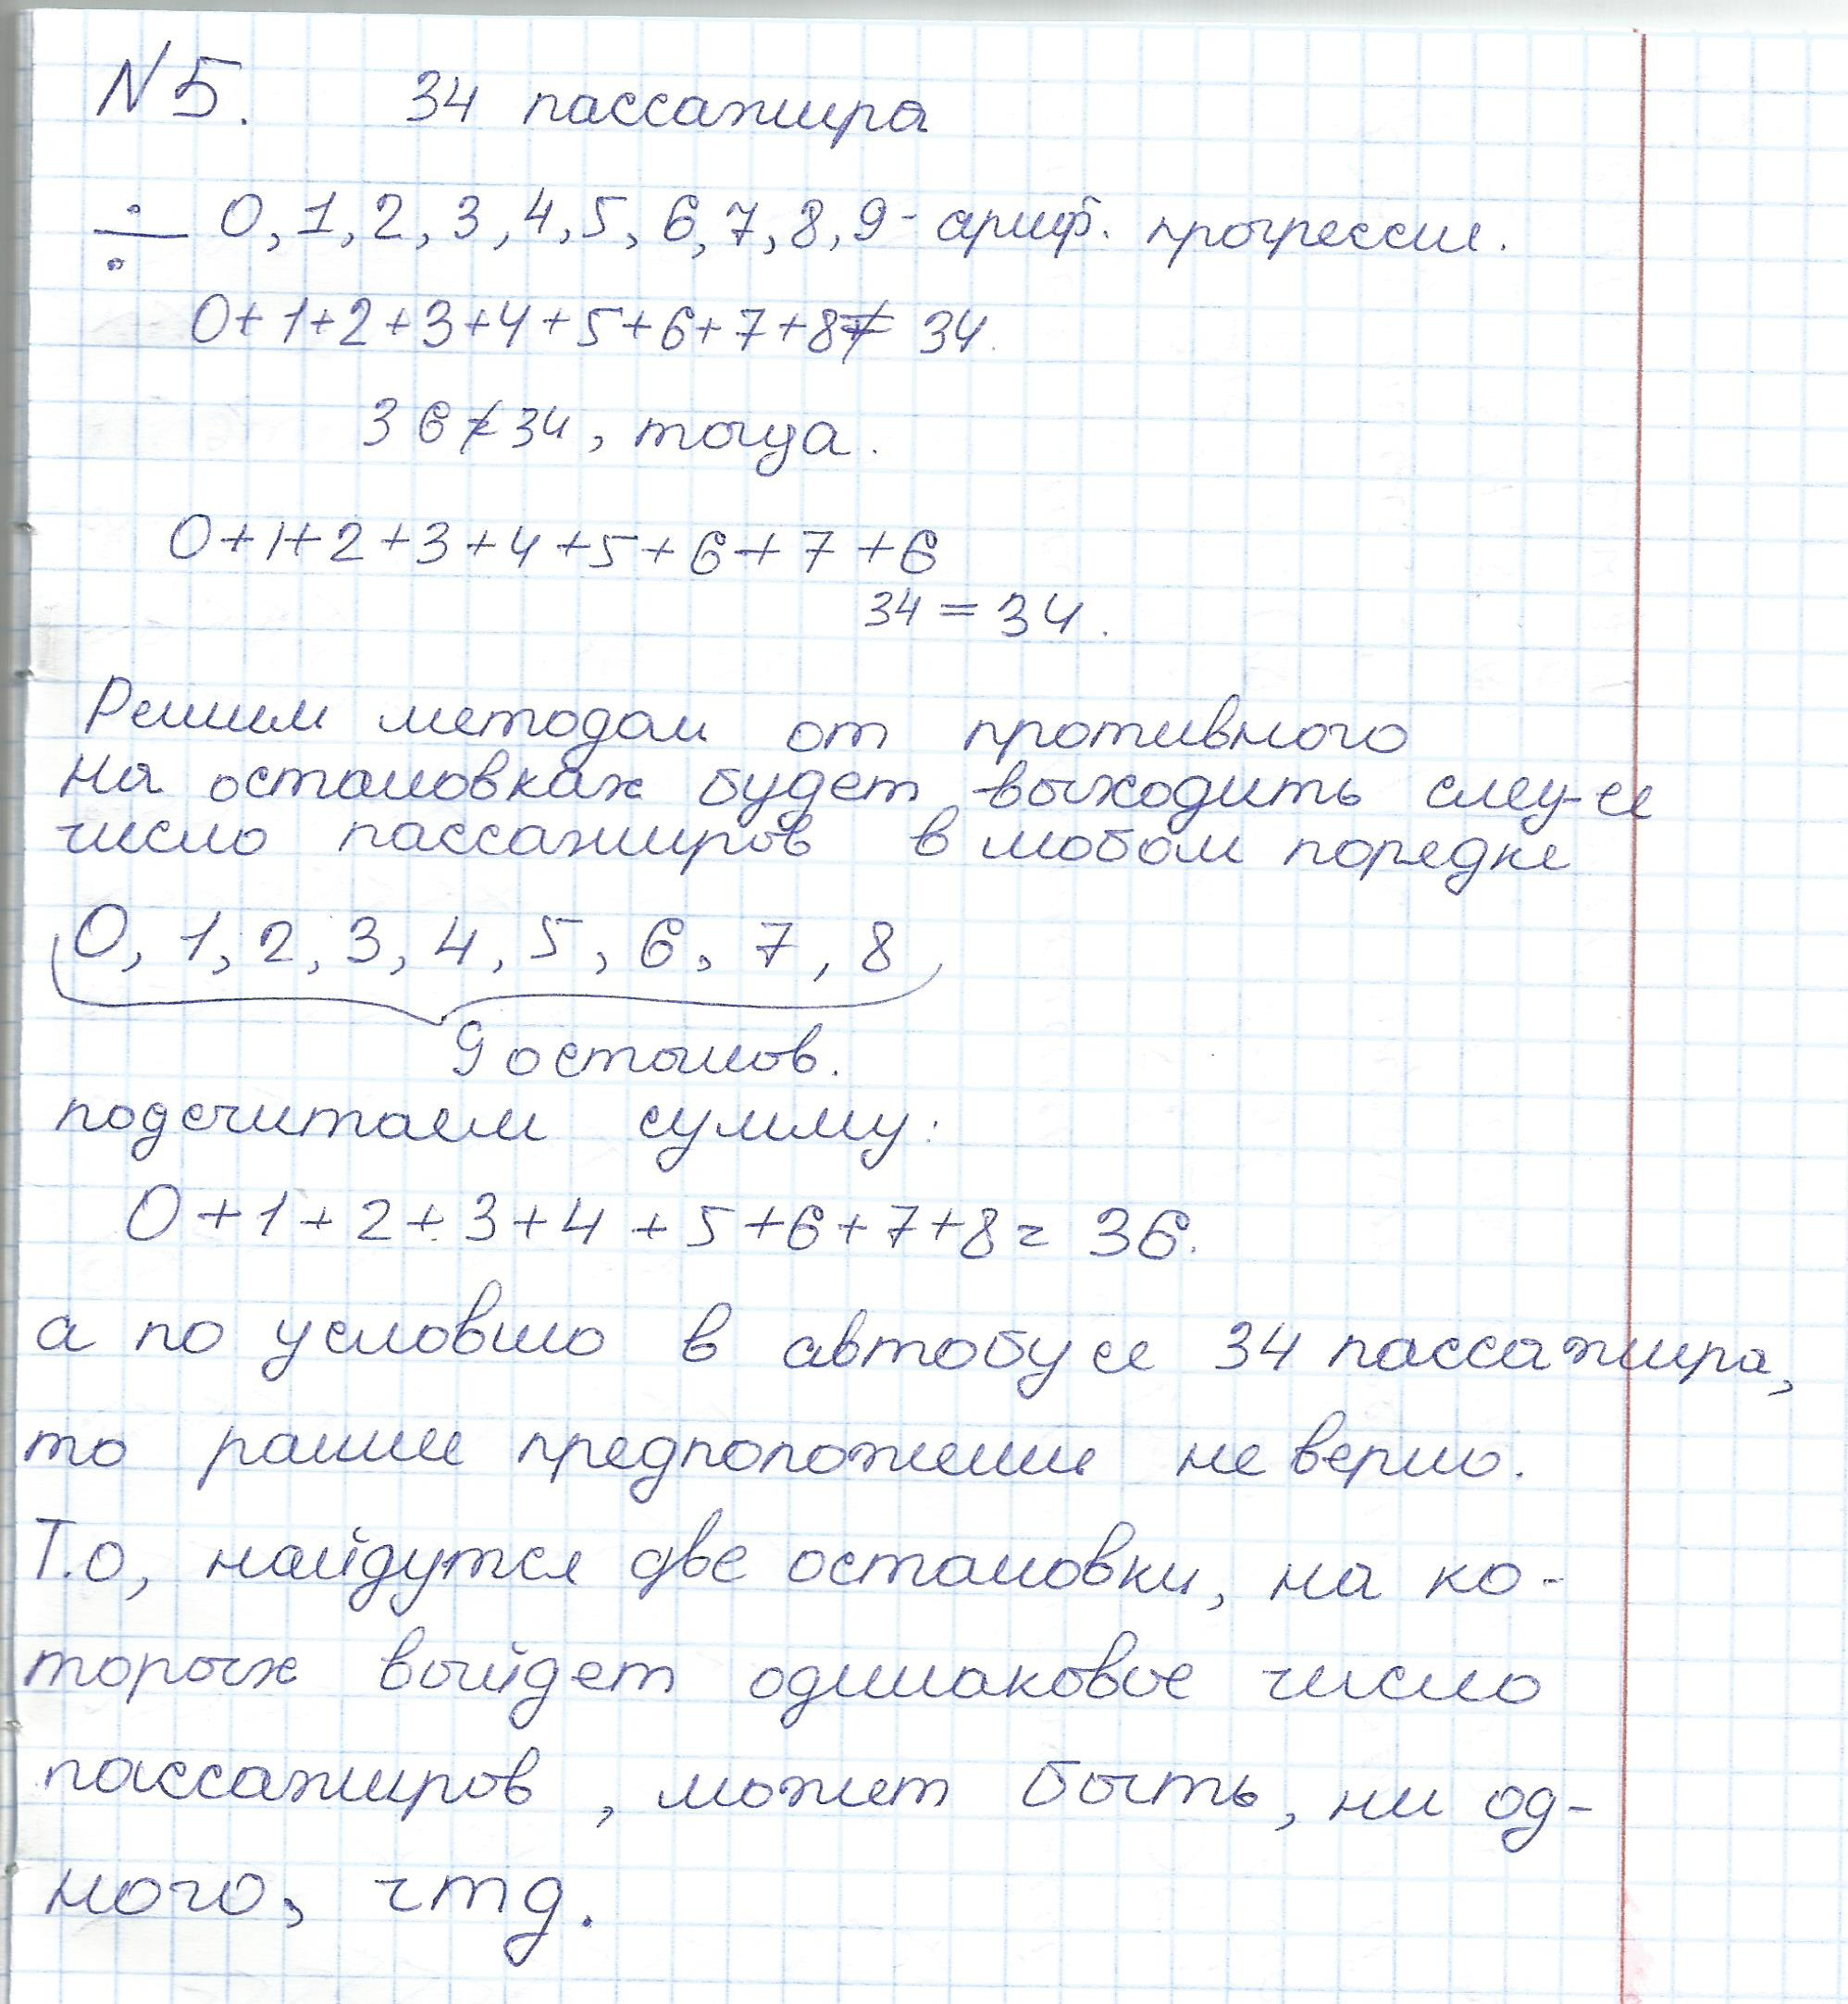 N5. 34 пассажира
÷ 0, 1, 2, 3, 4, 5, 6, 7, 8, 9 - ариф. прогрессия.
0+1+2+3+4+5+6+7+8≠ 34.
36≠34, тогда.
0+1+2+3+4+5+6+7+6
34 = 34.
Решим методом от противного
на остановках будет выходить след-е
число пассажиров в любом порядке
0, 1, 2, 3, 4, 5, 6, 7, 8,
9 останов.
подсчитаем сумму:
0+1+2+3+4+5+6+7+8= 36.
а по условию в автобусе 34 пассажира,
то предположение не верно.
Т.о, найдутся две остановки, на ко-
торых выйдет одинаковое число
пассажиров, может быть, ни од-
ного, чтд.